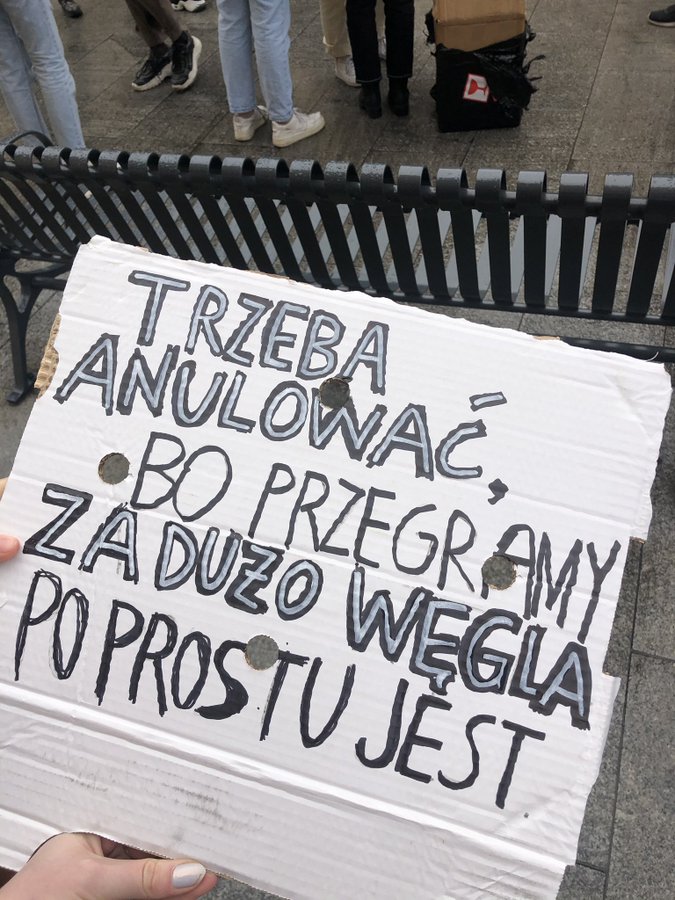 TRZEBA
ANULOWAĆ,
BO PRZEGRAMY
ZA DUZO WĘGLA
PO PROSTU JEST